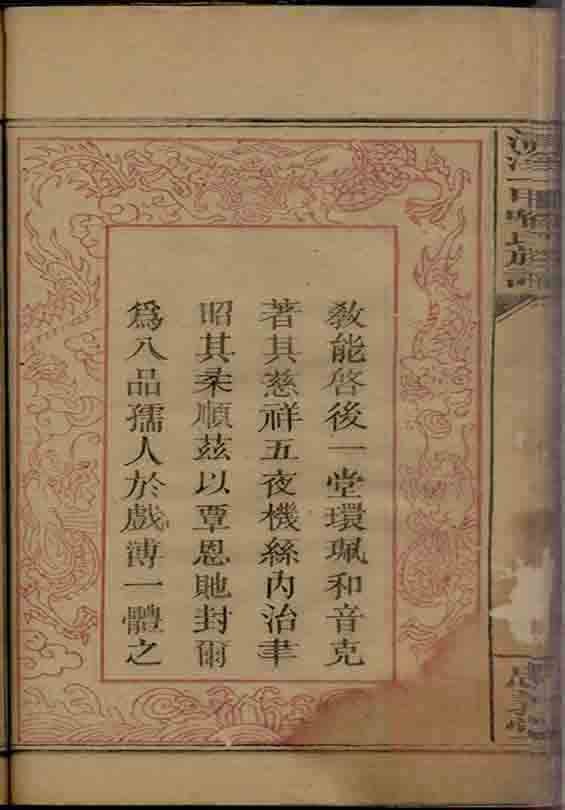 教能啓後一堂環珮和音克
著其慈祥五夜機絲內治聿
昭其柔順茲以覃恩貤封爾
爲八品孺人於戲溥一體之
氏族譜